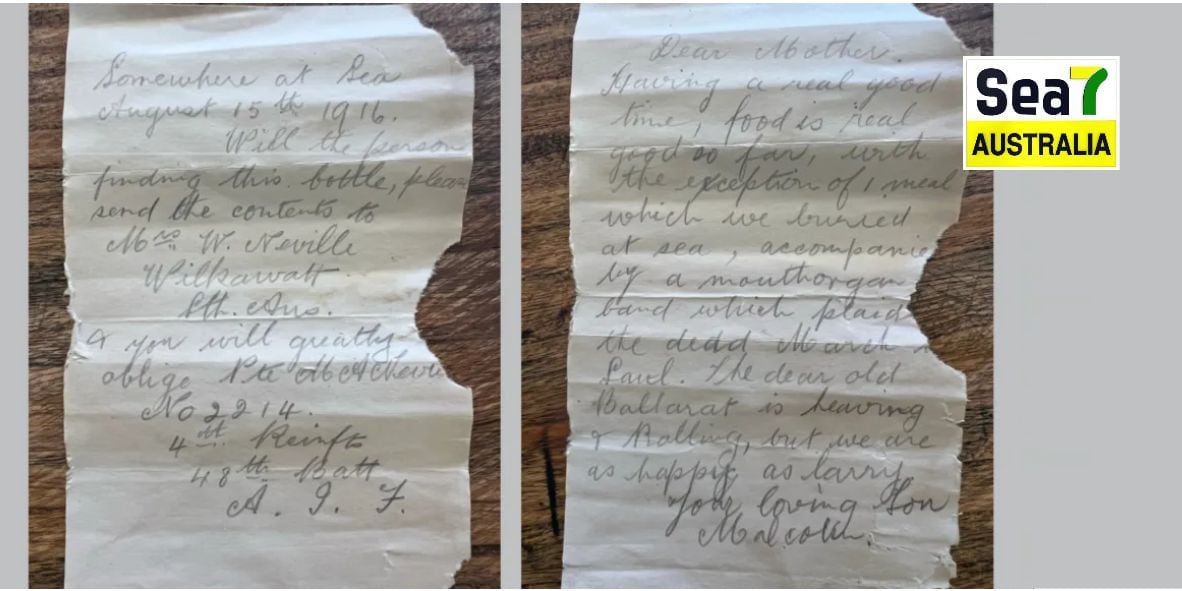 Somewhere at Sea
August 15th 1916.
Will the person
finding this bottle, pleas
send the contents to
Mrs W. Neville
Wilkawatt
Sth. Aus.
& you will greatly
oblige Pte
No 2214.
4th Reinfts
48th Batt
A. I. F.
Dear Mother.
Having a real good
time, food is real
good so far, with
the exception of 1 meal
which we buried
at sea, accompanie
by a mouthorgan
band which plaid
the dead March
Saul. The dear old
Ballarat is heaving
& Rolling, but we are
as happy as larry
Your loving Son
Malcolm.
Sea7
AUSTRALIA